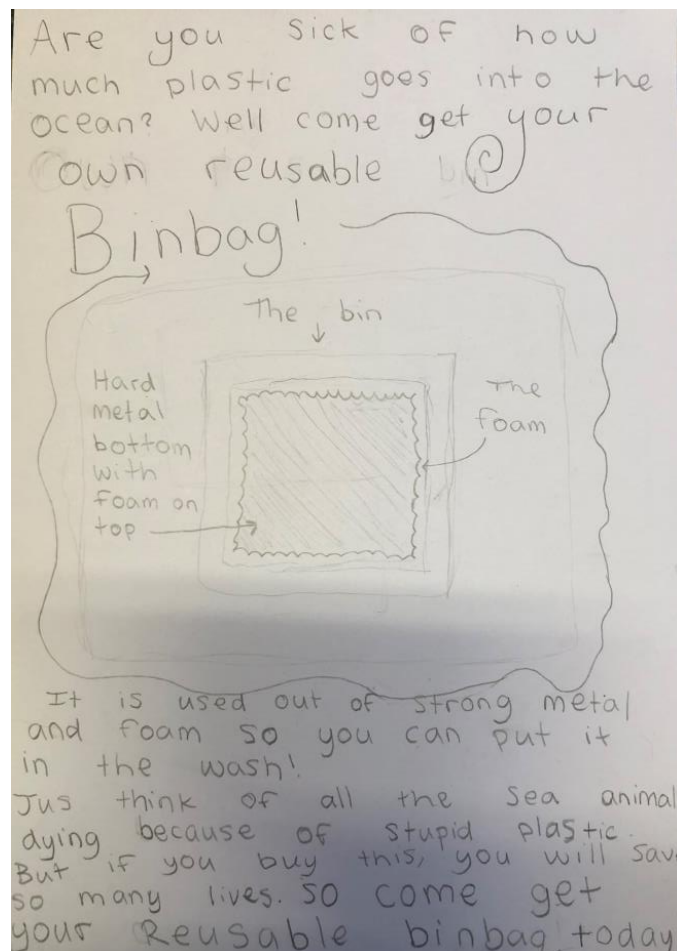 Are you sick of how
much plastic goes into the
ocean? Well come get your
own reusable
Binbag!
The bin
Hard
metal
bottom
with
foam on
top
The
foam
It is used out of strong metal
and foam so you can put it
in the wash!
Jus think of all the sea animal
dying because of stupid plastic.
But if you buy this, you will sav
so many lives. So come get
your Reusable binbag today